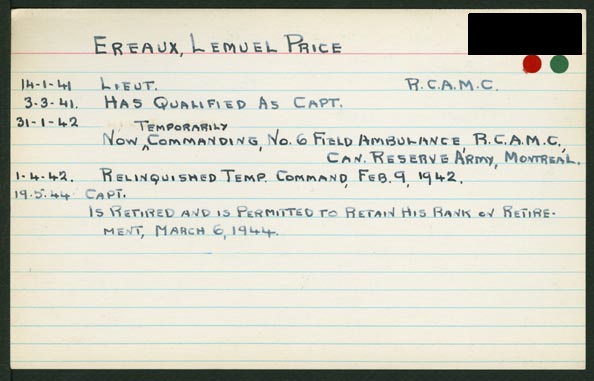 EREAUX, LEMUEL PRICE
14-1-41 LIEUT. R.C.A.M.C.
3-3-41. HAS QUALIFIED AS CAPT.
31-1-42 TEMPORARILY
NOW ^ COMMANDING, NO. 6 FIELD AMBULANCE, R.C.A.M.C.,
CAN. RESERVE ARMY, MONTREAL.
1-4-42. RELINQUISHED TEMP. COMMAND, FEB. 9, 1942.
19.5.44 CAPT.
IS RETIRED AND IS PERMITTED TO RETAIN HIS RANK ON RETIRE-
MENT, MARCH 6, 1944.